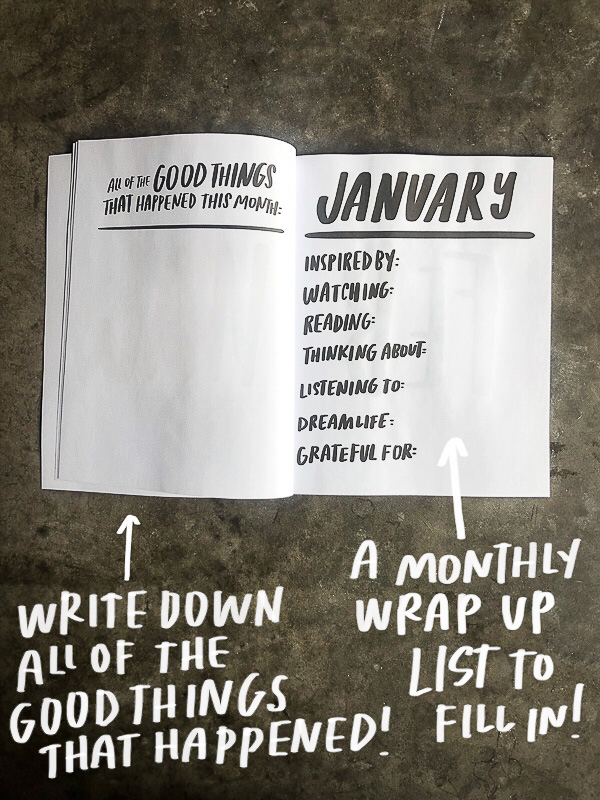 ALL OF THE GOOD THINGS
THAT HAPPENED THIS MONTH:
JANUARY
INSPIRED BY:
WATCHING:
READING:
THINKING ABOUT:
LISTENING TO:
DREAMLIFE:
GRATEFUL FOR:
WRITE DOWN
ALL OF THE
GOOD THINGS
THAT HAPPENED!
A MONTHLY
WRAP UP
LIST TO
FILL IN!